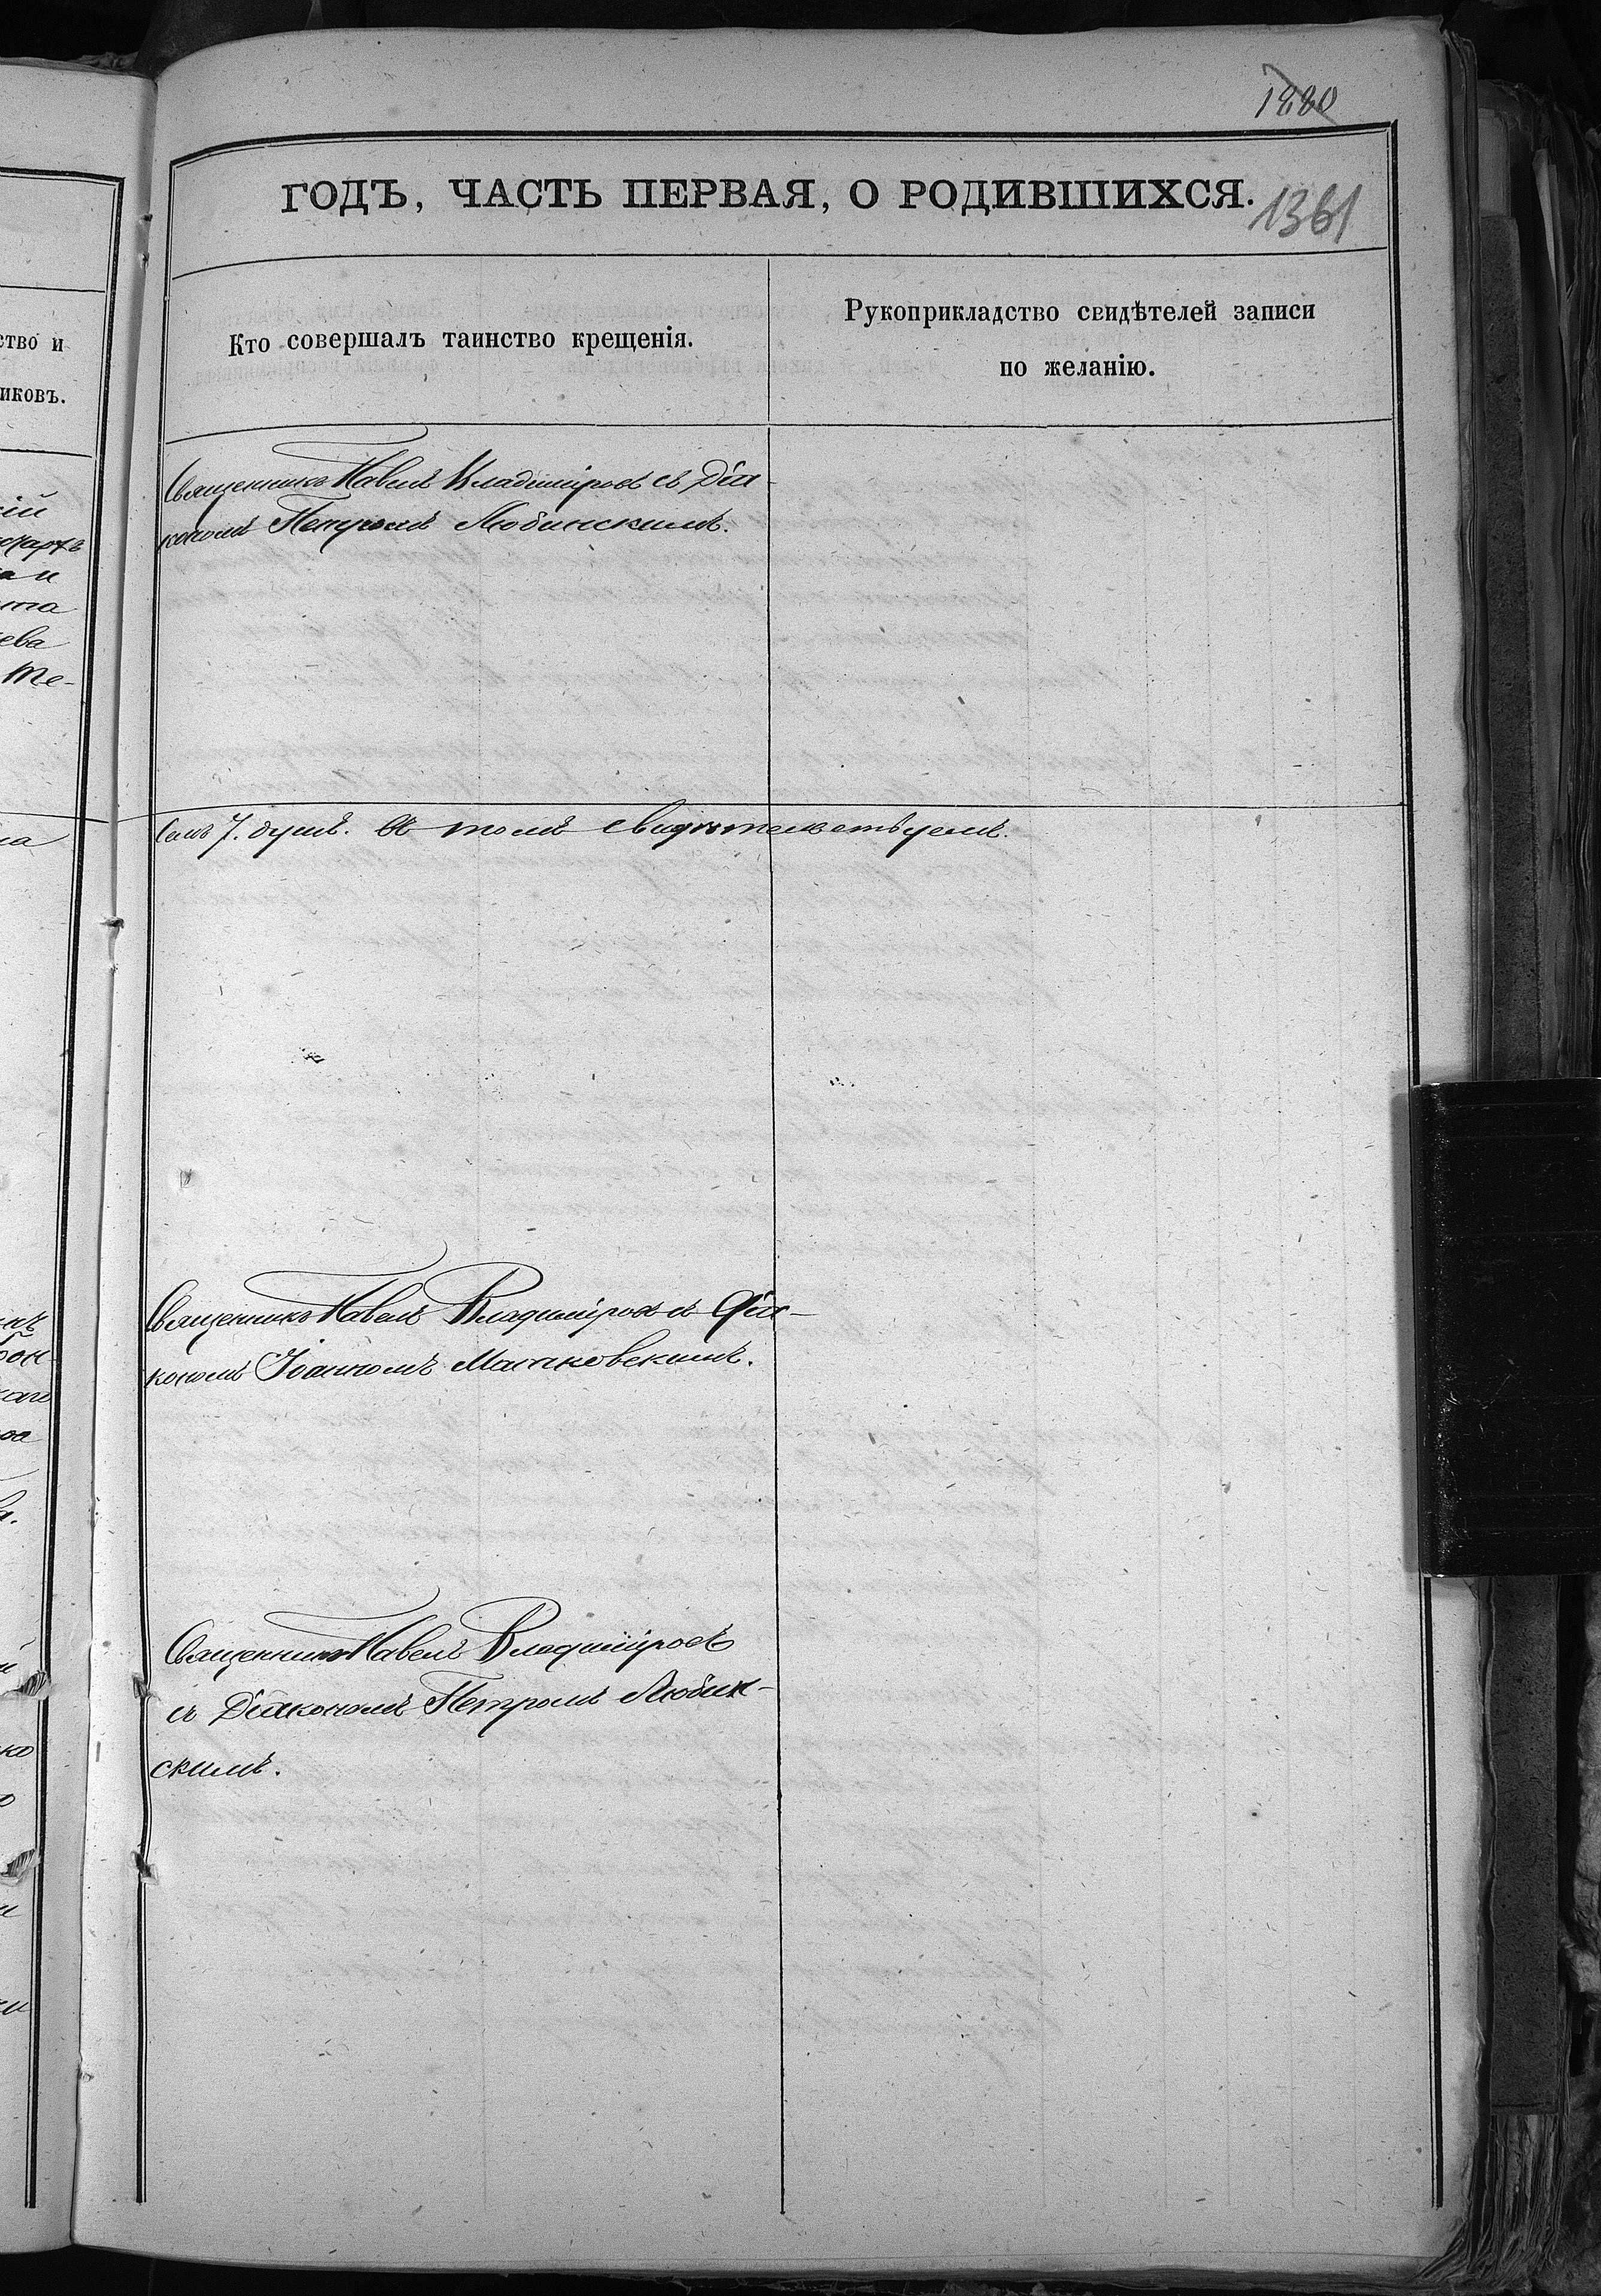 1880
ГОДЪ, ЧАСТЬ ПЕРВАЯ, О РОДИВШИХСЯ.
1361
Кто совершалъ таинство крещенія.
Рукоприкладство свидѣтелей записи
по желанію.
ство и
иковъ.
Священникъ Павелъ Владиміровъ съ Діа-
кономъ Петромъ Любинскимъ.
7. душъ. въ томъ свидѣтельствуемъ.
Священникъ Павелъ Владиміровъ съ Діа-
кономъ Іоанномъ Матковскимъ.
Священникъ Павелъ Владиміровъ
съ Діакономъ Петромъ Любин-
скимъ.